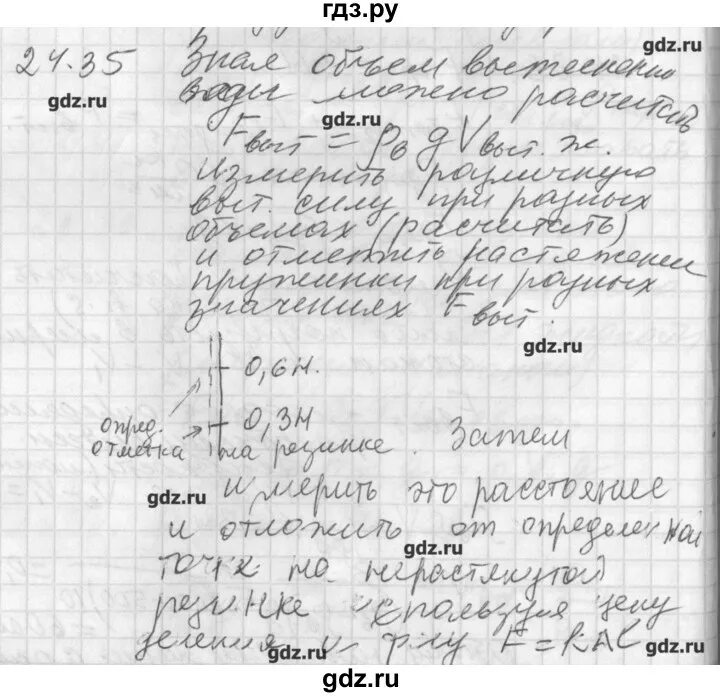 гдз.ру
24.35 Зная объем вытеснения
gdz.ru
воды можно расчитать
gdz.ru
gdz.ru
Fвыт = ρв g Vвыт. ж.
измерить различную
gdz.ru
выт. силу при разных
объемах (расчитать)
и отметить растяжении
пружинки при разных
значениях Fвыт.
gdz.ru
gdz.ru
0,6 Н.
0,3 Н
опред.
отметка
на резинке. Затем
измерить это расстояние
gdz.ru
и отложить от определенной
gdz.ru
точк на нерастянутой
резинке используя цену
деления и ф-лу F = kΔl
gdz.ru
gdz.ru
гдз.ру